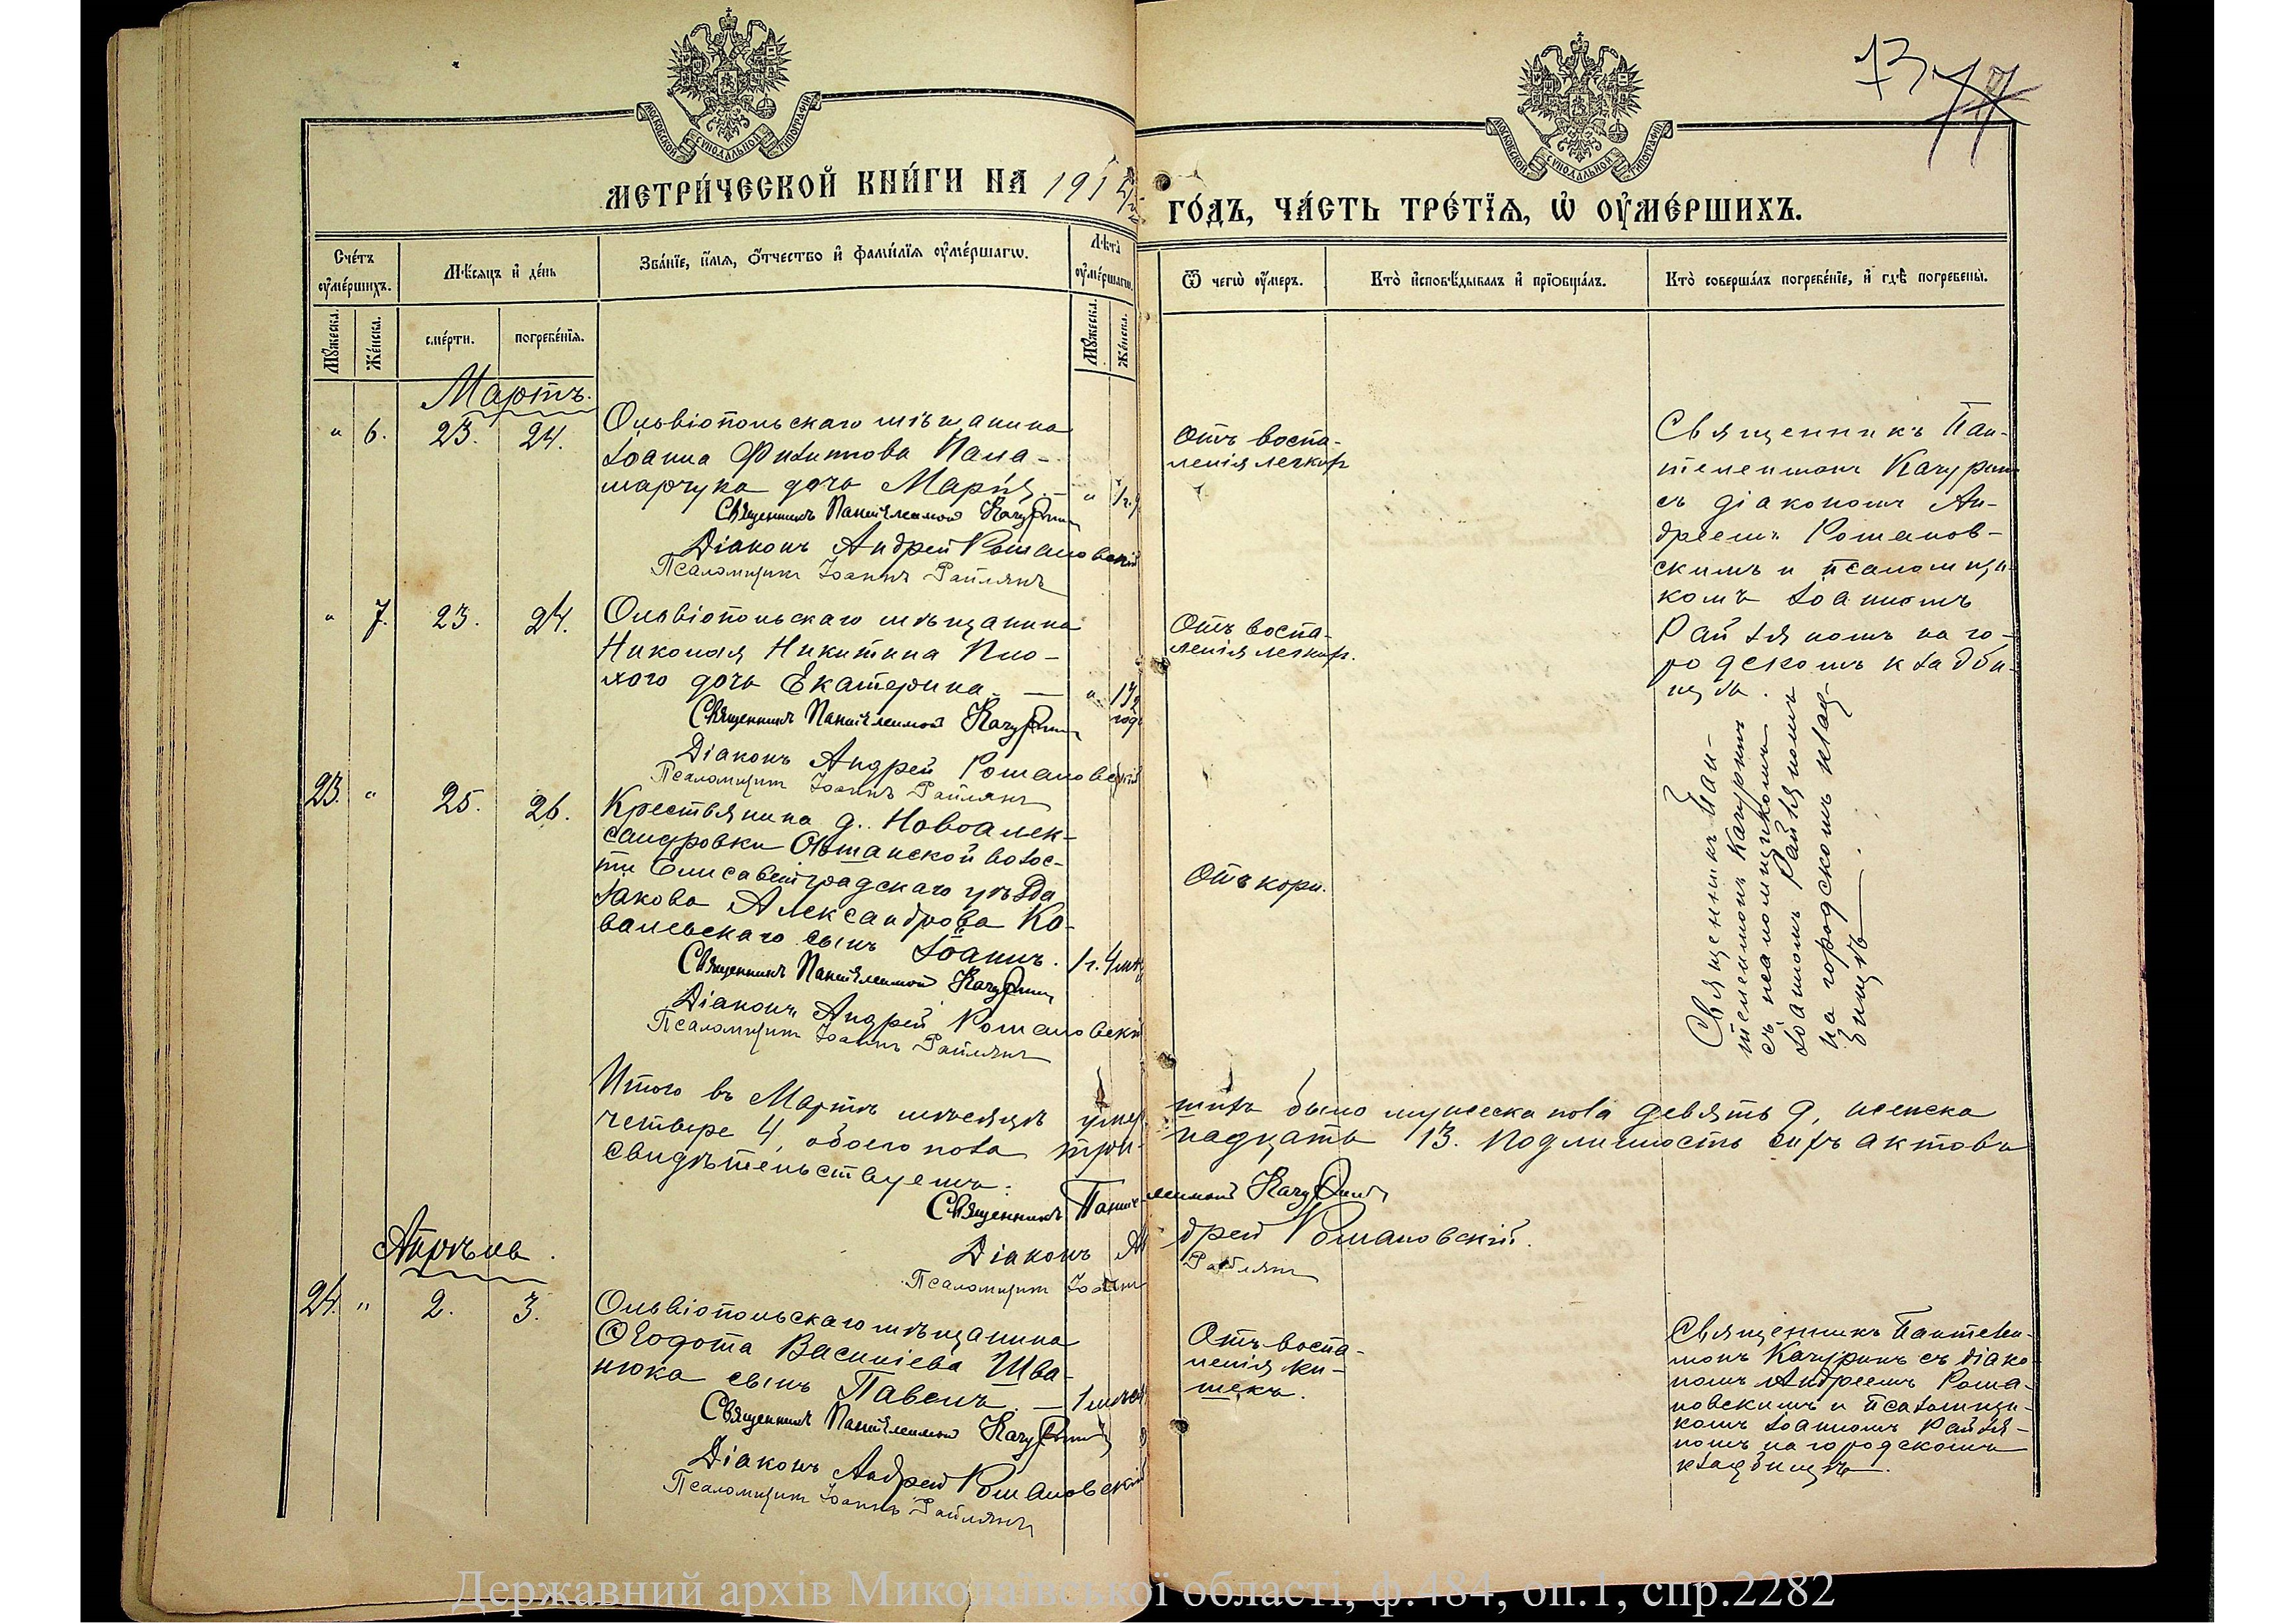 73
77
МОСКОВСКОЙ СѴНОДАЛЬНОЙ ТИПОГРАФІИ
МОСКОВСКОЙ СѴНОДАЛЬНОЙ ТИПОГРАФІИ
МЕТРИ́ЧЕСКОЙ КНИ́ГИ НА 191
ГО́ДЪ, ЧА́СТЬ ТРЕ́ТЇѦ, Ѡ҆ ОУ҆МЕ́РШИХЪ.
Сче́тъ оу҆ме́ршихъ.
Мѣ́сѧцъ и҆ де́нь
Зва́нїе, и҆́мѧ, ѻ҆́тчество и҆ фами́лїѧ оу҆ме́ршагѡ.
Лѣ́та оу҆ме́ршагѡ.
Ѿ чегѡ̀ оу҆́меръ.
Кто̀ и҆сповѣ́дывалъ и҆ прїѡбща́лъ.
Кто̀ соверша́лъ погребе́нїе, и҆ гдѣ̀ погребены̀.
Мꙋ́жеска. Же́нска. сме́рти. погребе́нїѧ. Мꙋ́жеска. Же́нска.
Мартъ.
" 6. 23. 24.
Ольвіопольскаго мѣщанина
Іоанна Филиппова Пала-
марчука дочь Марія — "
Священникъ Пантелеимон Качурин
Діаконъ Андрей Романовскій
Псаломщикъ Іоаннъ Райлянъ
Отъ воспа-
ленія легкихъ
Священникъ Пан-
телеимонъ Качуринъ
съ діакономъ Ан-
дреемъ Романов-
скимъ и псаломщи-
комъ Іоанномъ
Райляномъ на го-
родскомъ кладби-
щѣ.
" 7. 23. 24.
Ольвіопольскаго мѣщанина
Николая Никитина Пло-
хого дочь Екатерина — " 1½ год.
Священникъ Пантелеимон Качурин
Діаконъ Андрей Романовскій
Псаломщикъ Іоаннъ Райлянъ
Отъ воспа-
ленія легкихъ.
23. " 25. 26.
Крестьянина д. Новоалек-
сандровки Ольшанской волос-
ти Елисаветградскаго уѣзда
Іакова Александрова Ко-
вальскаго сынъ Іоаннъ. 1 г. 4 мѣс
Священникъ Пантелеимон Качурин
Діаконъ Андрей Романовскій
Псаломщикъ Іоаннъ Райлянъ
Отъ кори.
Священникъ Пан-
телеимонъ Качуринъ
съ псаломщикомъ
Іоанномъ Райляномъ
на городскомъ клад-
бищѣ.
Итого въ Мартѣ мѣсяцѣ умер шихъ было мужеска пола девять 9, женска
четыре 4, обоего пола три- надцать 13. Подлинность сихъ актовъ
свидѣтельствуемъ:
Священникъ Пантелеимон Качуринъ
Діаконъ Андрей Романовскій.
Псаломщикъ Іоаннъ Райлянъ
Апрѣль.
24. " 2. 3.
Ольвіопольскаго мѣщанина
Ѳеодота Василіева Шва-
нюка сынъ Павелъ. — 1 мѣс
Священникъ Пантелеимон Качурин
Діаконъ Андрей Романовскій
Псаломщикъ Іоаннъ Райлянъ
Отъ воспа-
ленія ки-
шекъ.
Священникъ Пантелеи-
монъ Качуринъ съ діако-
номъ Андреемъ Рома-
новскимъ и псаломщи-
комъ Іоанномъ Райля-
номъ на городскомъ
кладбищѣ.
Державний архів Миколаївської області, ф.484, оп.1, спр.2282